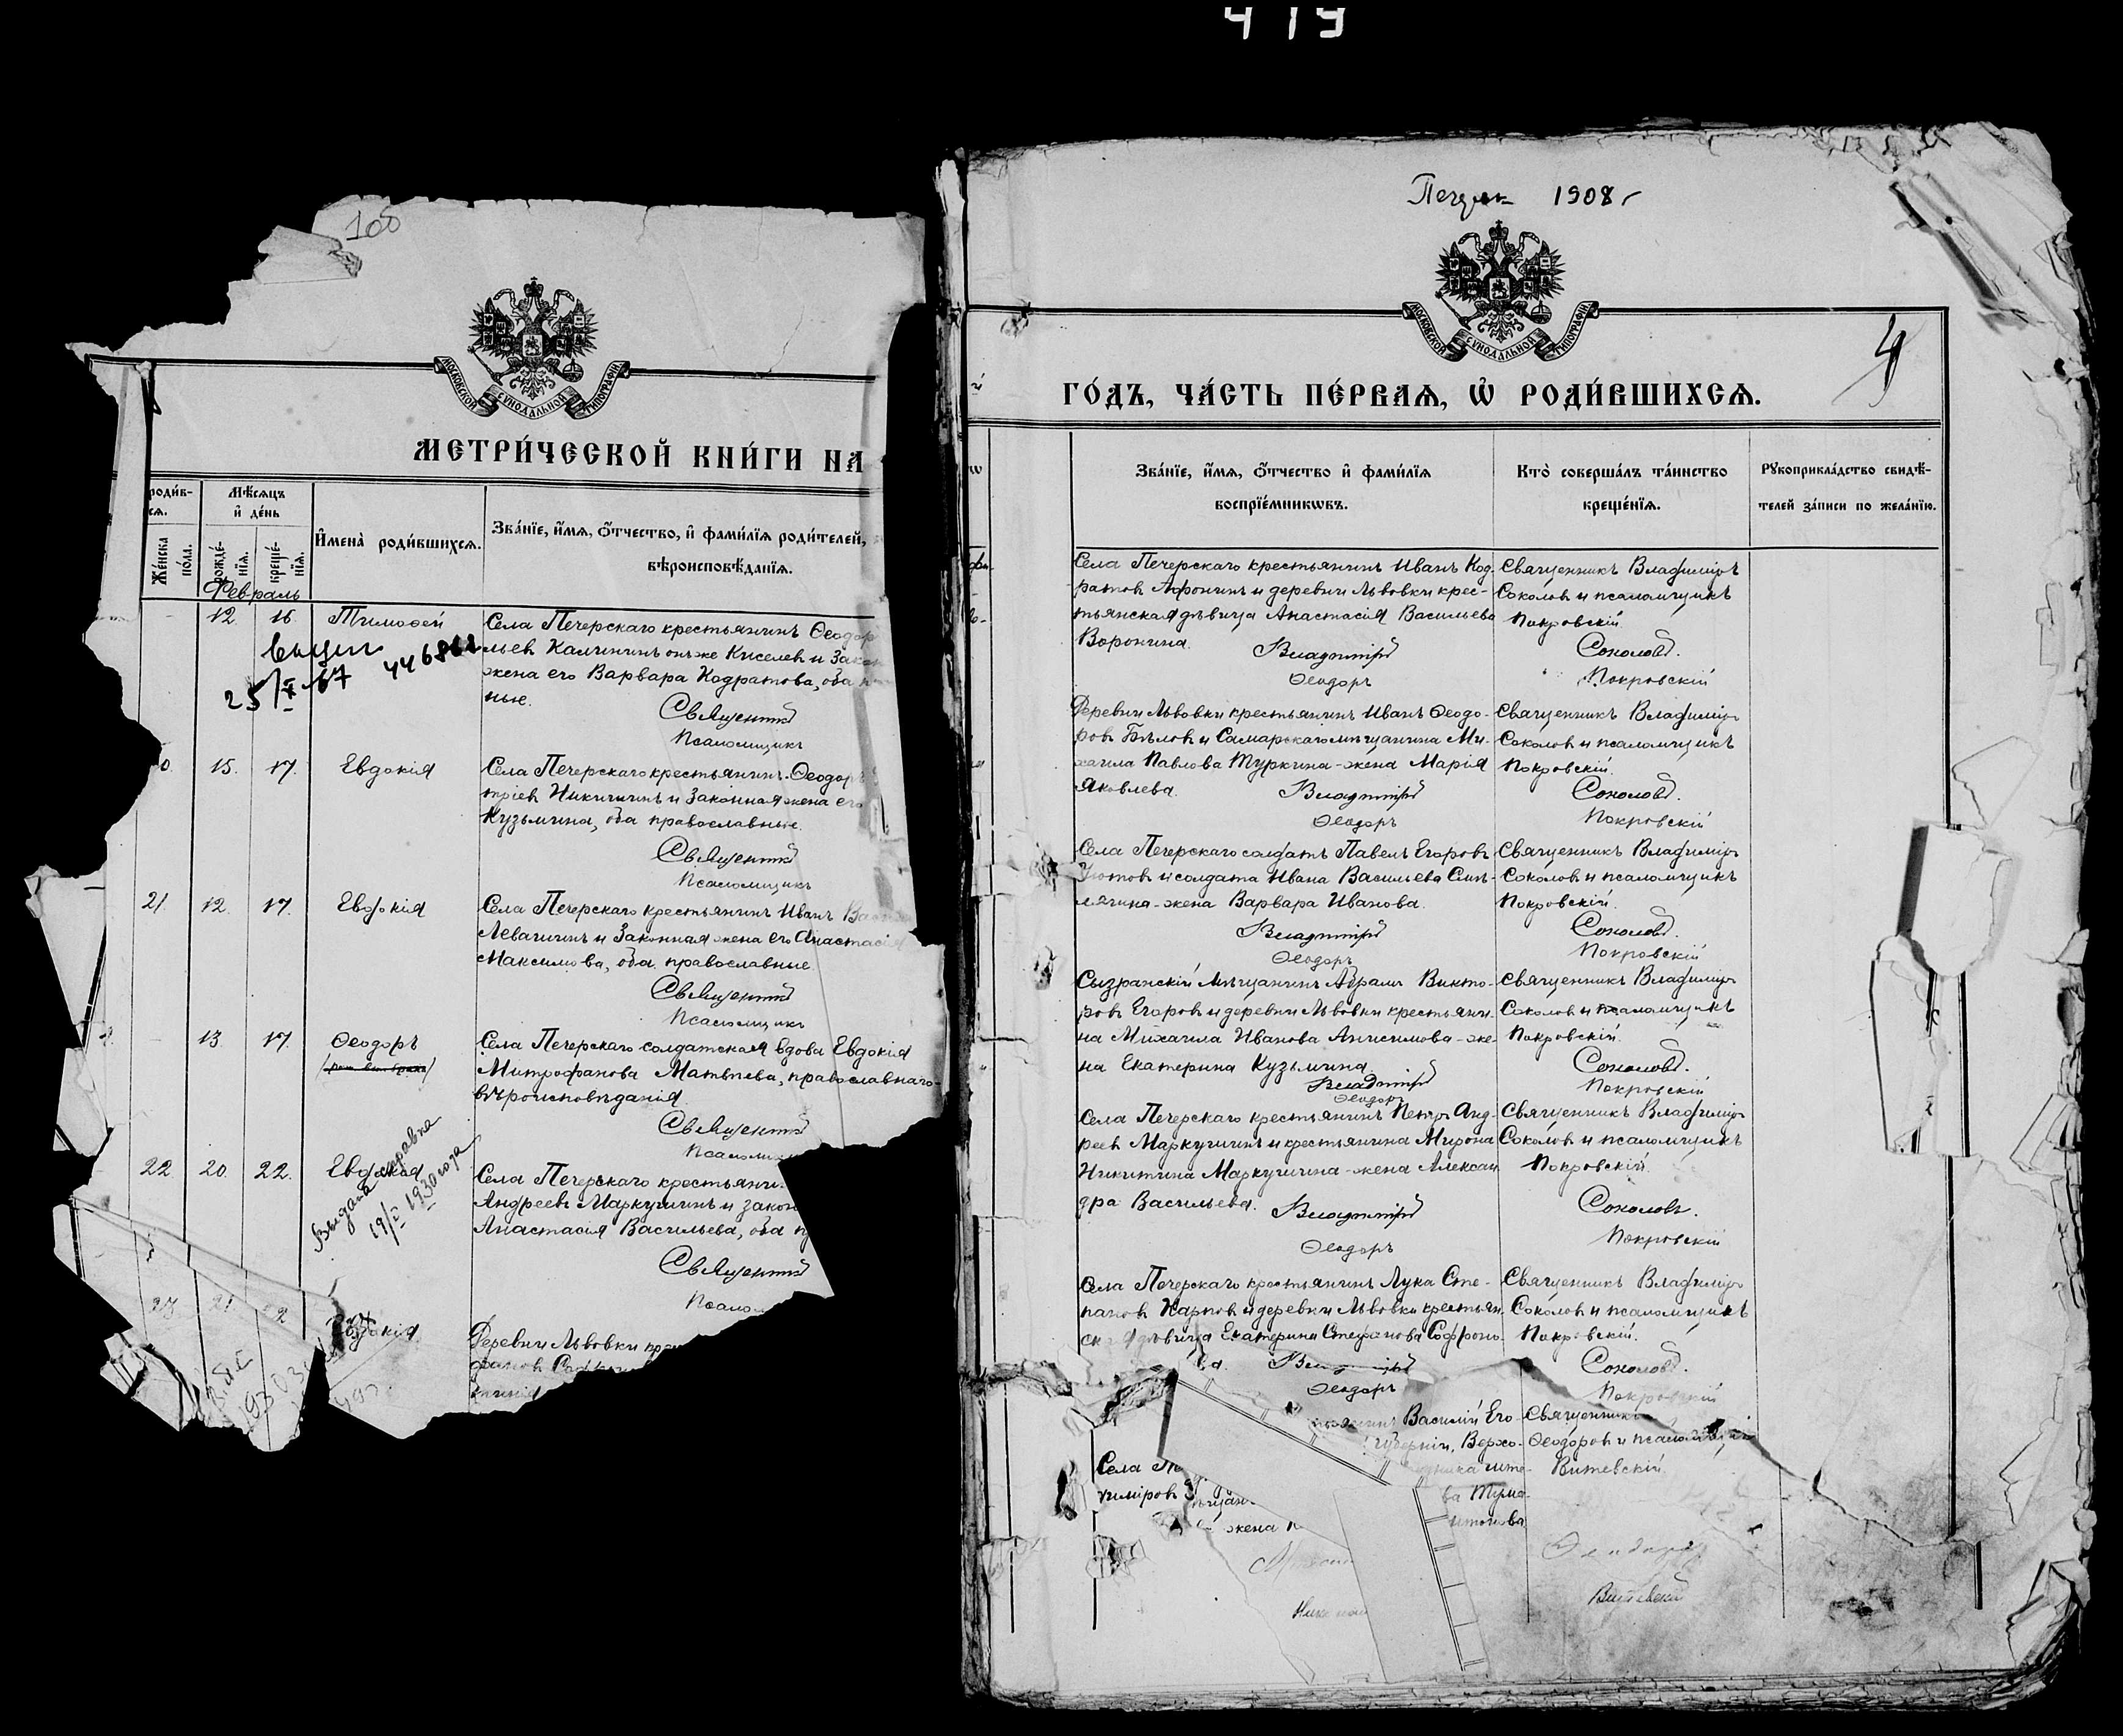 419
100
МОСКОВСКОЙ СѴНОДАЛЬНОЙ ТИПОГРАФІИ
МЕТРИ́ЧЕСКОЙ КНИ́ГИ НА
роди́в-
сѧ.
Же́нска по́ла.
Мѣ́сѧцъ и҆ де́нь
рожде́-нїѧ.
креще́-нїѧ.
И҆мена̀ роди́вшихсѧ.
Зва́нїе, и҆́мѧ, ѻ҆́тчество, и҆ фами́лїѧ роди́телей,
вѣроисповѣ́данїѧ.
Февраль
12. 16. Тимоѳей
Села Печерскаго крестьянинъ Ѳеодор
льевъ Калининъ онъ же Киселевъ и Закон
жена его Варвара Кодратова, оба
ные.
Священникъ
Псаломщикъ
25/X 67 446862
0. 15. 17. Евдокія
Села Печерскаго крестьянинъ Ѳеодоръ
тріевъ Никитинъ и Законная жена его
Кузьмина, оба православные.
Священникъ
Псаломщикъ
21. 12. 17. Евдокія
Села Печерскаго крестьянинъ Иванъ Ва
Левагинъ и Законная жена его Анастасія
Максимова, оба православные.
Священникъ
Псаломщикъ
13. 17. Ѳеодоръ
Села Печерскаго солдатская вдова Евдокія
Митрофанова Матвѣева, православнаго
вѣроисповѣданія.
Священникъ
Псаломщ
22. 20. 22. Евдокія
Выдана справка
19/V 1930 года
Села Печерскаго крестьяни
Андреевъ Маркушинъ и закон
Анастасія Васильева, оба п
Священникъ
Псало
23. 21. 2
Деревни Львовки кр
Печерск 1908 г
МОСКОВСКОЙ СѴНОДАЛЬНОЙ ТИПОГРАФІИ
4
ГО́ДЪ, ЧА́СТЬ ПЕ́РВАѦ, Ѽ РОДИ́ВШИХСѦ.
Зва́нїе, и҆́мѧ, ѻ҆́тчество и҆ фами́лїѧ
воспрїе́мникѡвъ.
Кто̀ соверша́лъ та́инство
креще́нїѧ.
Рꙋкоприкла́дство свидѣ́-
телей за́писи по жела́нїю.
Села Печерскаго крестьянинъ Иванъ Код-
ратовъ Афонинъ и деревни Львовки крес-
тьянская дѣвица Анастасія Васильева
Воронина.
Владимиръ
Ѳеодоръ
Священникъ Владиміръ
Соколовъ и псаломщикъ
Покровскій.
Соколовъ.
Покровскій
Деревни Львовки крестьянинъ Иванъ Ѳеодо-
ровъ Бѣловъ и Самарскаго мѣщанина Ми-
хаила Павлова Туркина жена Марія
Яковлева.
Владимиръ
Ѳеодоръ
Священникъ Владиміръ
Соколовъ и псаломщикъ
Покровскій.
Соколовъ.
Покровскій
Села Печерскаго солдатъ Павелъ Егоровъ
и солдата Ивана Васильева Син-
жена Варвара Иванова.
Владимиръ
Ѳеодоръ
Священникъ Владиміръ
Соколовъ и псаломщикъ
Покровскій.
Соколовъ.
Покровскій
Сызранскій мѣщанинъ Абрамъ Викто-
ровъ Егоровъ и деревни Львовки крестьяни-
на Михаила Иванова Анисимова же-
на Екатерина Кузьмина.
Владимиръ
Ѳеодоръ
Священникъ Владиміръ
Соколовъ и псаломщикъ
Покровскій.
Соколовъ.
Покровскій
Села Печерскаго крестьянинъ Петръ Анд-
реевъ Маркушинъ и крестьянина Мирона
Никитина Маркушина жена Алексан
дра Васильева.
Владимиръ
Ѳеодоръ
Священникъ Владиміръ
Соколовъ и псаломщикъ
Покровскій.
Соколовъ.
Покровскій
Села Печерскаго крестьянинъ Лука Сте-
пановъ Карповъ и деревни Львовки крестьян
ская дѣвица Екатерина Стефанова Софроно-
ва.
Ѳеодоръ
Священникъ Владиміръ
Соколовъ и псаломщикъ
Покровскій.
Соколовъ.
Покровскій
Василій Его-
губерніи, Верхо-
Села
жена
Священникъ
Ѳеодоровъ и псаломщикъ
Витевскій.
Ѳеодоровъ
Витевскій